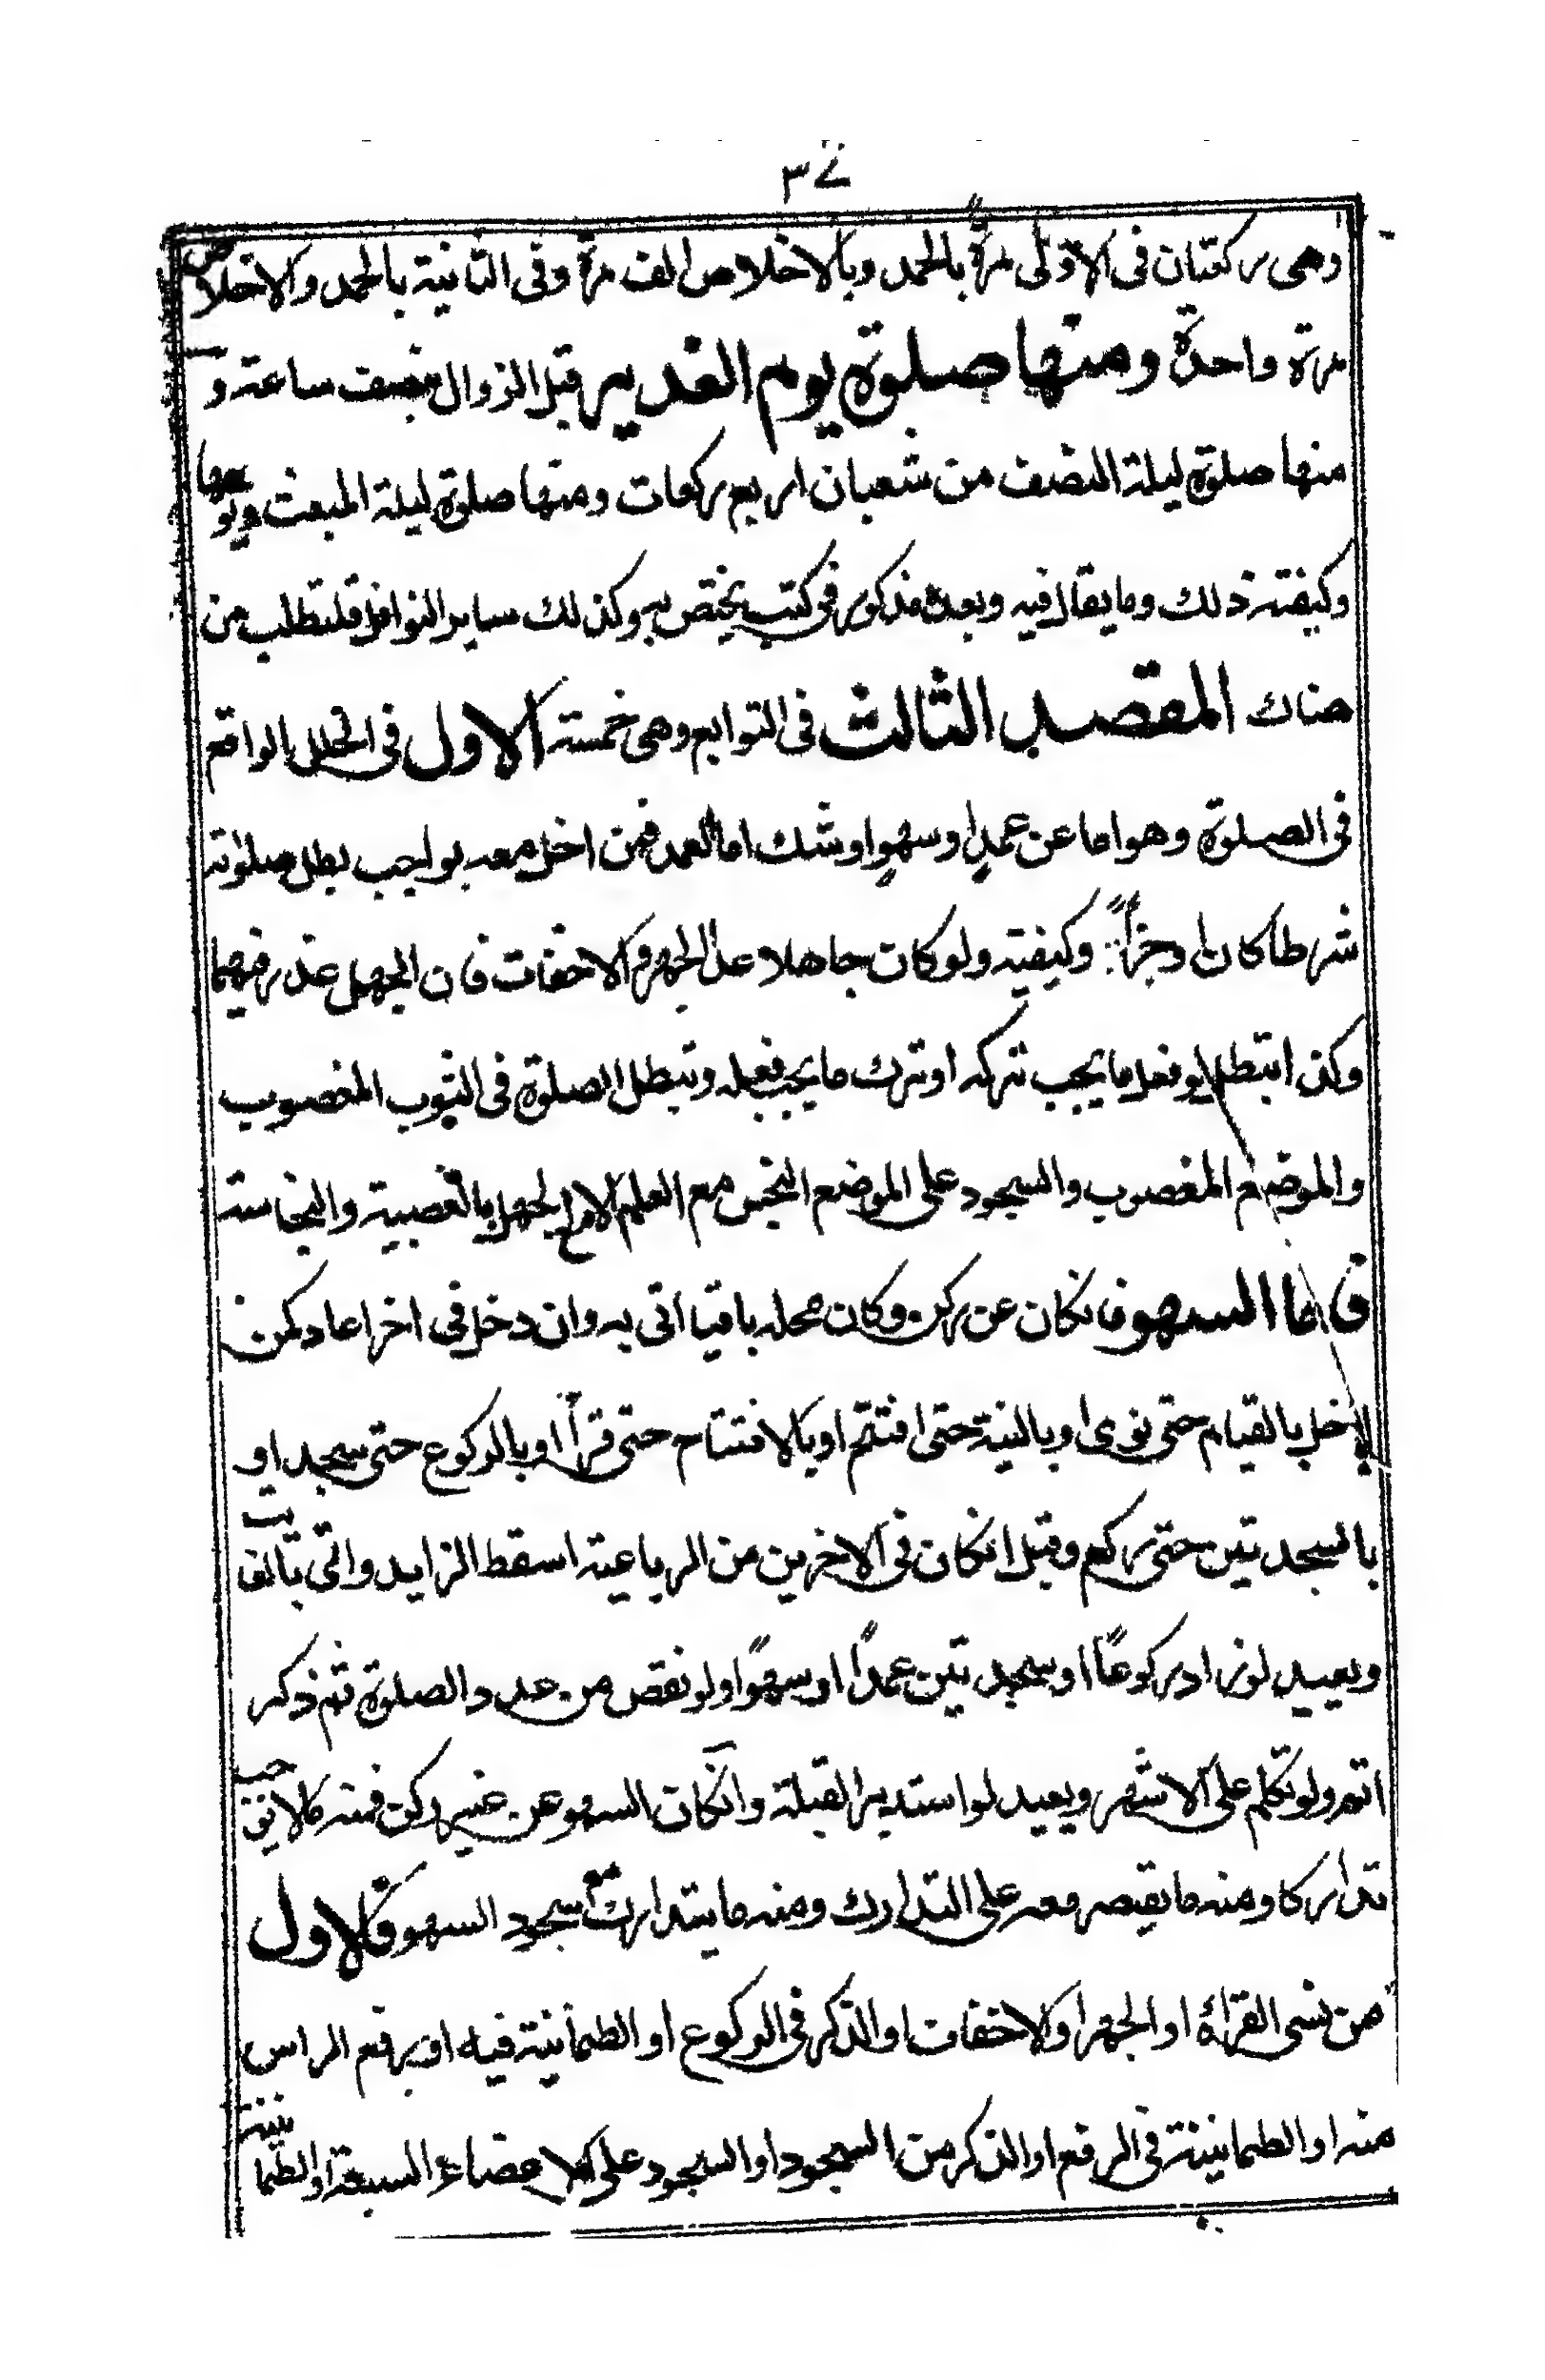 ٣٧
وهى ركعتان فى الاوّلى مرّةً بالحمد وبالاخلاص الف مرّة وفى الثانية بالحمد والاخلاص
مرّة واحدة ومنها صلوة يوم الغدير قبل الزوال بنصف ساعة و
منها صلوة ليلة النصف من شعبان اربع ركعات ومنها صلوة ليلة المبعث ويومها
وكيفتة ذلك وما يقال فيه وبعده مذكور فى كتب يختص به وكذلك ساير النوافل فلتطلب من
هناك المقصد الثالث فى التوابع وهى خمسة الاول فى الخلل الواقع
فى الصلوة وهو اما عن عمدٍ او سهوٍ او شك اما العمد فمن اخل معه بواجب بطل صلوته
شرطا كان او جزأً وكيفيته ولو كان جاهلا عدا الجهر والاخفات فان الجهل عذر فيهما
وكذا تبطل لو فعل ما يجب تركه او ترك ما يجب فعله وتبطل الصلوة فى الثوب المغصوب
والموضع المغصوب والسجود على الموضع النجس مع العلم لا مع الجهل بالغصبية والنجاسة
واما السهو فانكان عن ركن وكان محله باقيا اتى به وان دخل فى اخر اعاد كمن
اخل بالقيام حتى نوى او بالنية حتى افتتح او بالافتتاح حتى قرأ او بالركوع حتى سجد او
بالسجدتين حتى ركع وقيل انكان فى الاخرين من الرباعية اسقط الزايد واتى بالفايت
ويعيد لو زاد ركوعًا او سجدتين عمدًا او سهوًا ولو نقص من عدد الصلوة ثم ذكر
اتم ولو تكلم على الاشهر ويعيد لو استدبر القبلة وانكان السهو عن غير ركن فمنه مالايوجب
تداركا ومنه ما يقصر معه على التدارك ومنه ما يتدارك مع سجود السهو فالاول
من نسى القرأة او الجهر او الاخفات او الذكر فى الركوع او الطمأنينة فيه او رفع الراس
منه او الطمانينة فى الرفع او الذكر من السجود او السجود على الاعضاء السبعة او الطمانينة